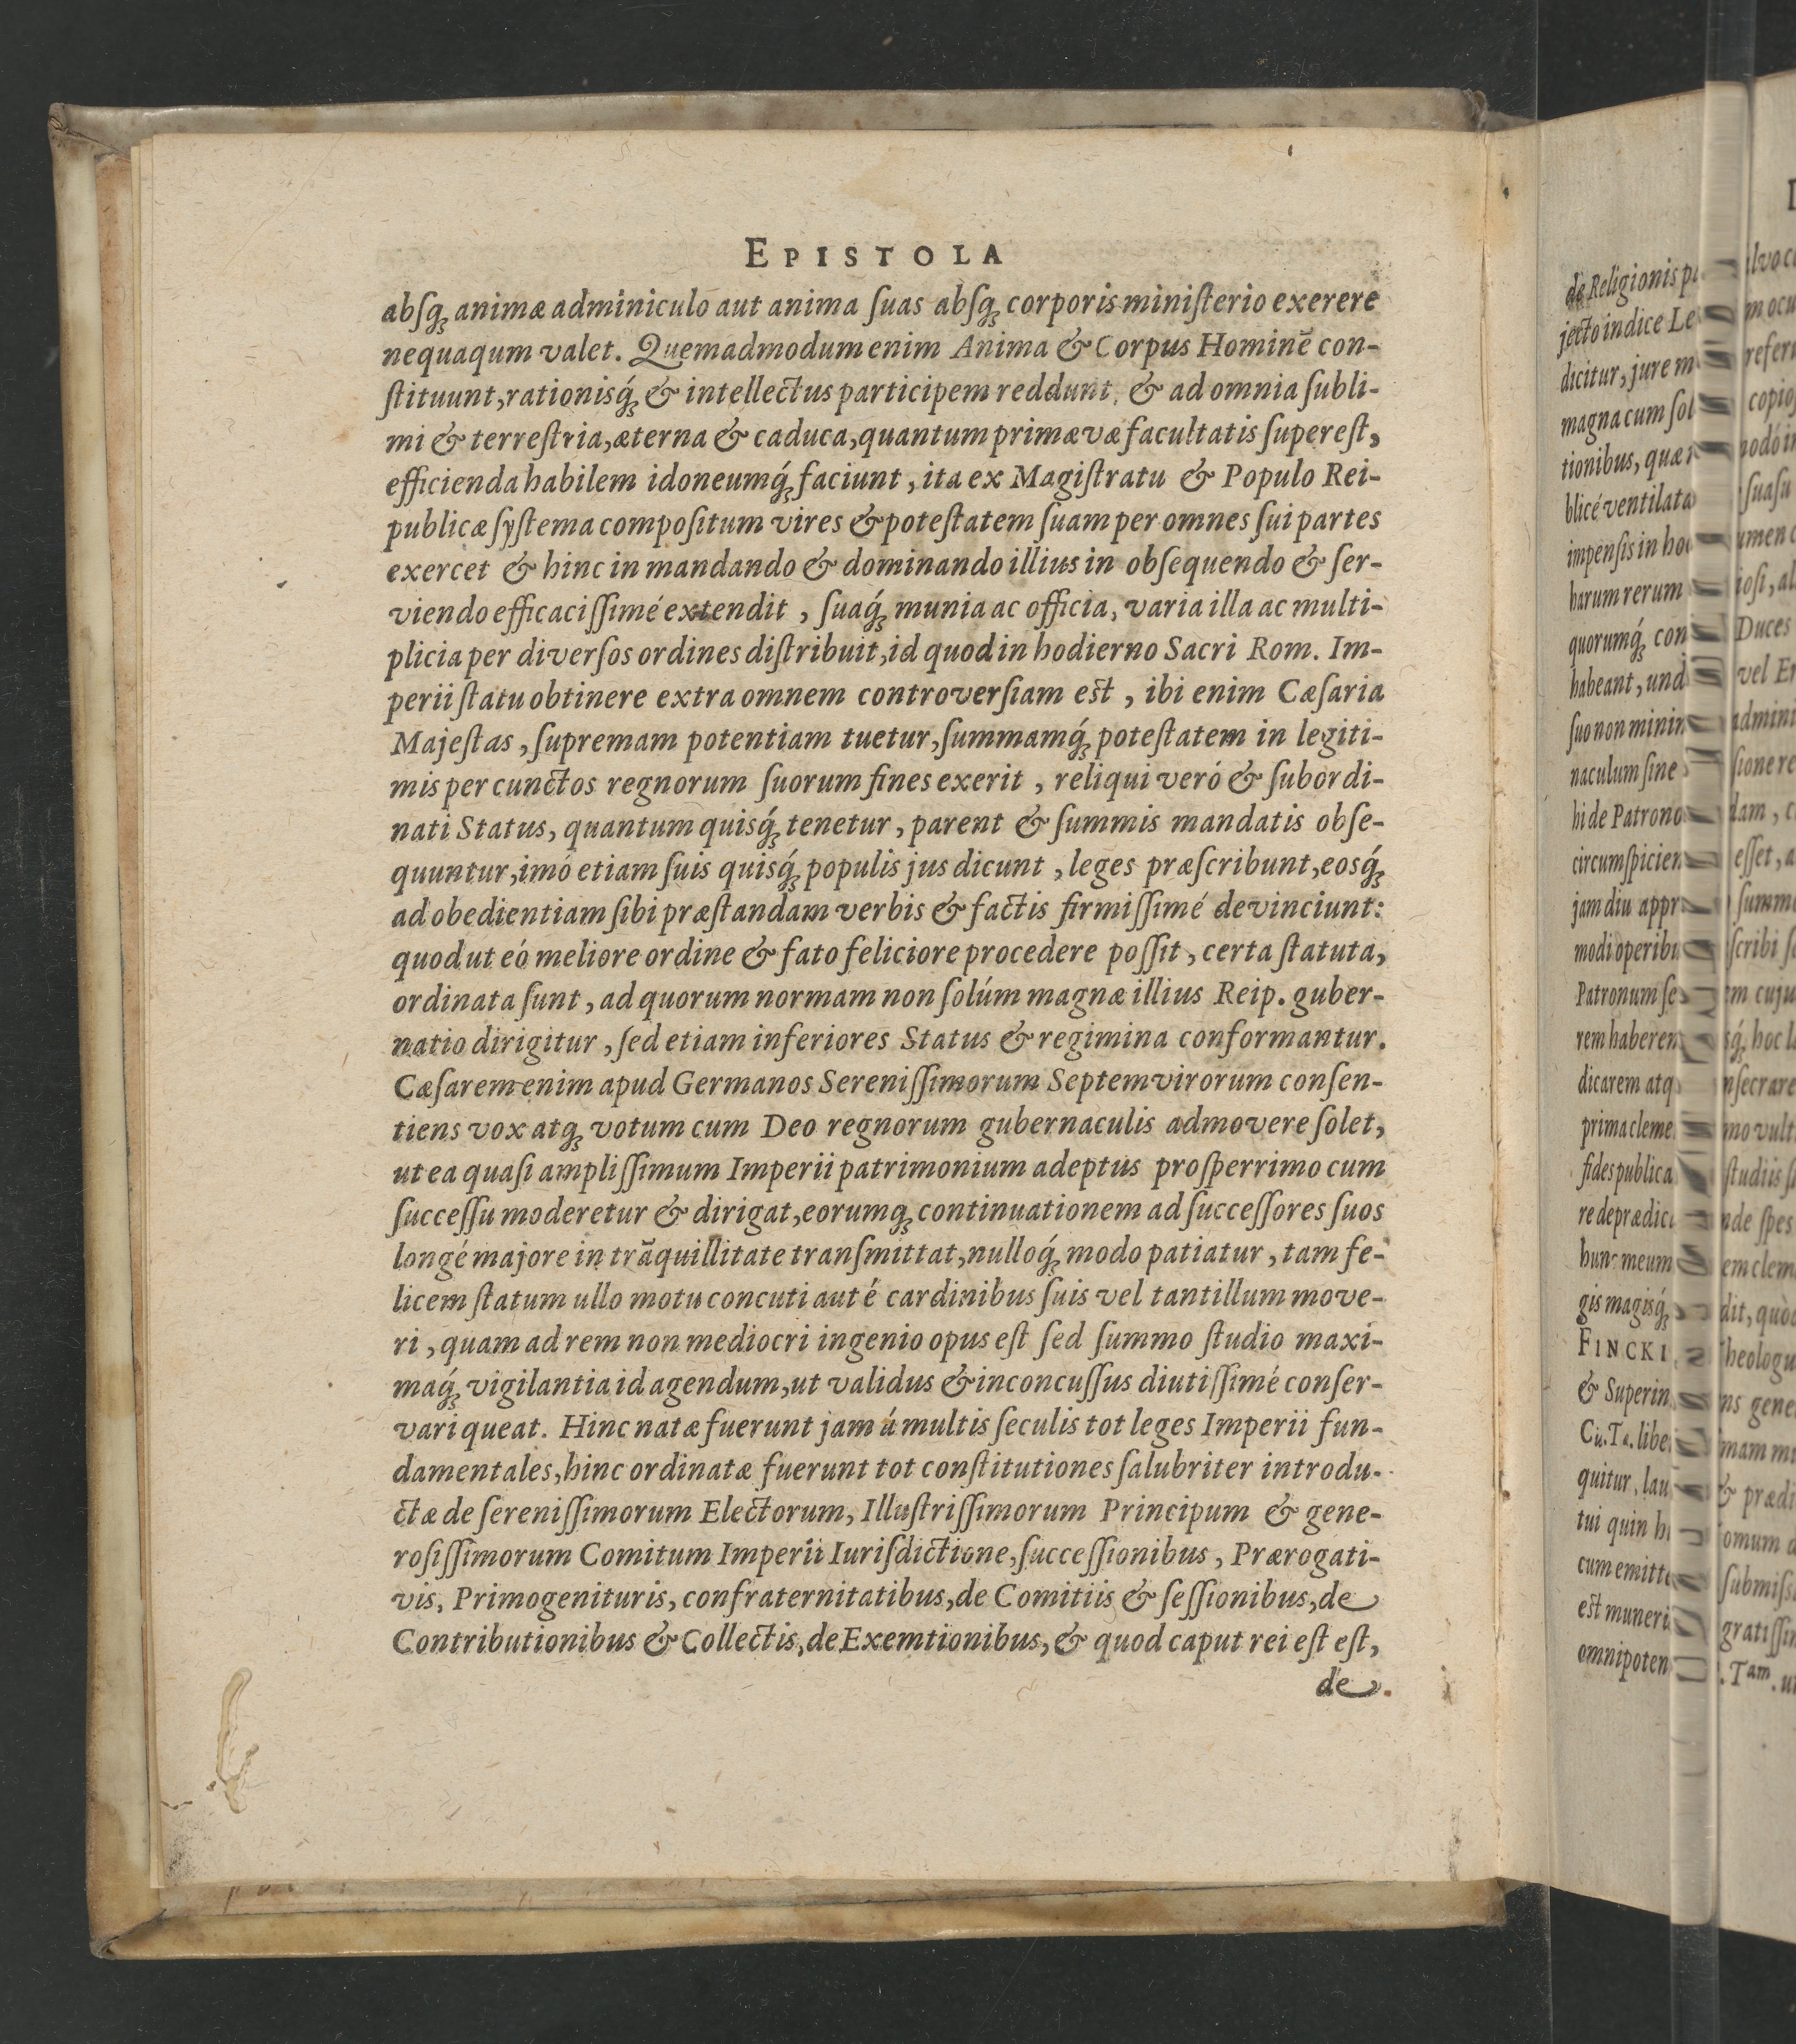 EPISTOLA
absq́ue animæ adminiculo aut anima suas absq́ue corporis ministerio exerere
nequaqum valet. Quemadmodum enim Anima & Corpus Hominē con-
ſtituunt, rationisq́; & intellectus participem reddunt, & ad omnia ſubli-
mi & terreſtria, æterna & caduca, quantum primævæ facultatis ſupereſt,
efficienda habilem idoneumq́; faciunt, ita ex Magiſtratu & Populo Rei-
publicæ ſyſtema compoſitum vires & poteſtatem ſuam per omnes ſui partes
exercet & hinc in mandando & dominando illius in obſequendo & ſer-
viendo efficaciſſimé extendit, ſuaq́; munia ac officia, varia illa ac multi-
plicia per diverſos ordines diſtribuit, id quod in hodierno Sacri Rom. Im-
perii ſtatu obtinere extra omnem controverſiam eſt, ibi enim Cæſaria
Majeſtas, ſupremam potentiam tuetur, ſummamq́; poteſtatem in legiti-
mis per cunctos regnorum ſuorum fines exerit, reliqui veró & ſubordi-
nati Status, quantum quisq́; tenetur, parent & ſummis mandatis obſe-
quuntur, imó etiam ſuis quisq́; populis jus dicunt, leges præſcribunt, eosq́;
ad obedientiam ſibi præſtandam verbis & factis firmiſſimé devinciunt:
quod ut eó meliore ordine & fato feliciore procedere poſſit, certa ſtatuta,
ordinata ſunt, ad quorum normam non ſolúm magnæ illius Reip. guber-
natio dirigitur, ſed etiam inferiores Status & regimina conformantur.
Cæſarem enim apud Germanos Sereniſſimorum Septemvirorum conſen-
tiens vox atq; votum cum Deo regnorum gubernaculis admovere ſolet,
ut ea quaſi ampliſſimum Imperii patrimonium adeptus proſperrimo cum
ſucceſſu moderetur & dirigat, eorumq; continuationem ad ſucceſſores ſuos
longé majore in trāquillitate tranſmittat, nulloq́; modo patiatur, tam fe-
licem ſtatum ullo motu concuti aut é cardinibus ſuis vel tantillum move-
ri, quam ad rem non mediocri ingenio opus eſt ſed ſummo ſtudio maxi-
maq́; vigilantia id agendum, ut validus & inconcuſſus diutiſſimé conſer-
vari queat. Hinc natæ fuerunt jam á multis ſeculis tot leges Imperii fun-
damentales, hinc ordinatæ fuerunt tot conſtitutiones ſalubriter introdu-
ctæ de ſereniſſimorum Electorum, Illuſtriſſimorum Principum & gene-
roſiſſimorum Comitum Imperii Iurisdictione, ſucceſſionibus, Prærogati-
vis, Primogenituris, confraternitatibus, de Comitiis & ſeſſionibus, de
Contributionibus & Collectis, de Exemtionibus, & quod caput rei eſt eſt,
de
de Religionis
jecto indice
dicitur, jure
magna cum
tionibus, quæ
blicé ventilata
impenſis in
harum rerum
quorumq́;
habeant,
ſuo non
naculum ſine
hi de Patrono
jam diu
Patronum
dicarem
prima
fides publica
hunc meum
gis magisq́;
FINCKI
& Superin
quitur,
tui quin
eſt muneri
Duces
vel
eſſet,